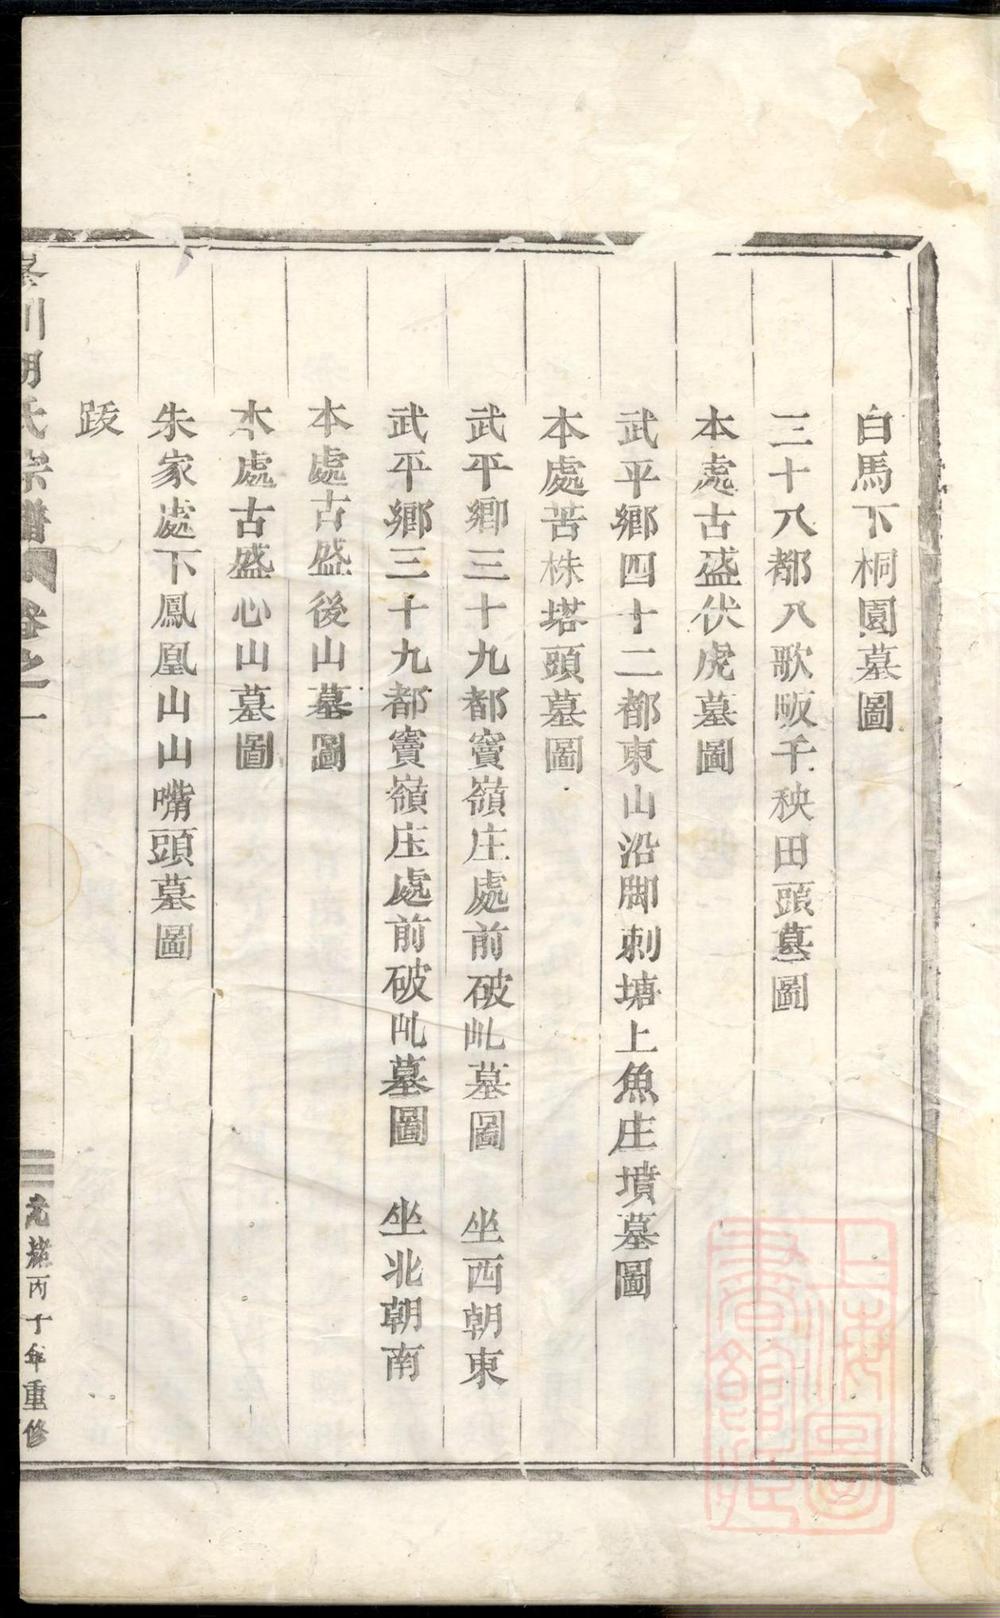 白馬下桐園墓圖
三十八都八歌畈千秧田頭墓圖
本處古盛伏虎墓圖
武平鄉四十二都東山沿脚刺塘上魚庄墳墓圖
本處苦株塔頭墓圖
武平鄉三十九都竇嶺庄處前破乢墓圖　坐西朝東
武平鄉三十九都竇嶺庄處前破乢墓圖　坐北朝南
本處古盛後山墓圖
本處古盛心山墓圖
朱家處下鳳凰山山嘴頭墓圖
跋
川胡氏宗譜　卷之一
光緒丙子年重修
上海圖書館藏